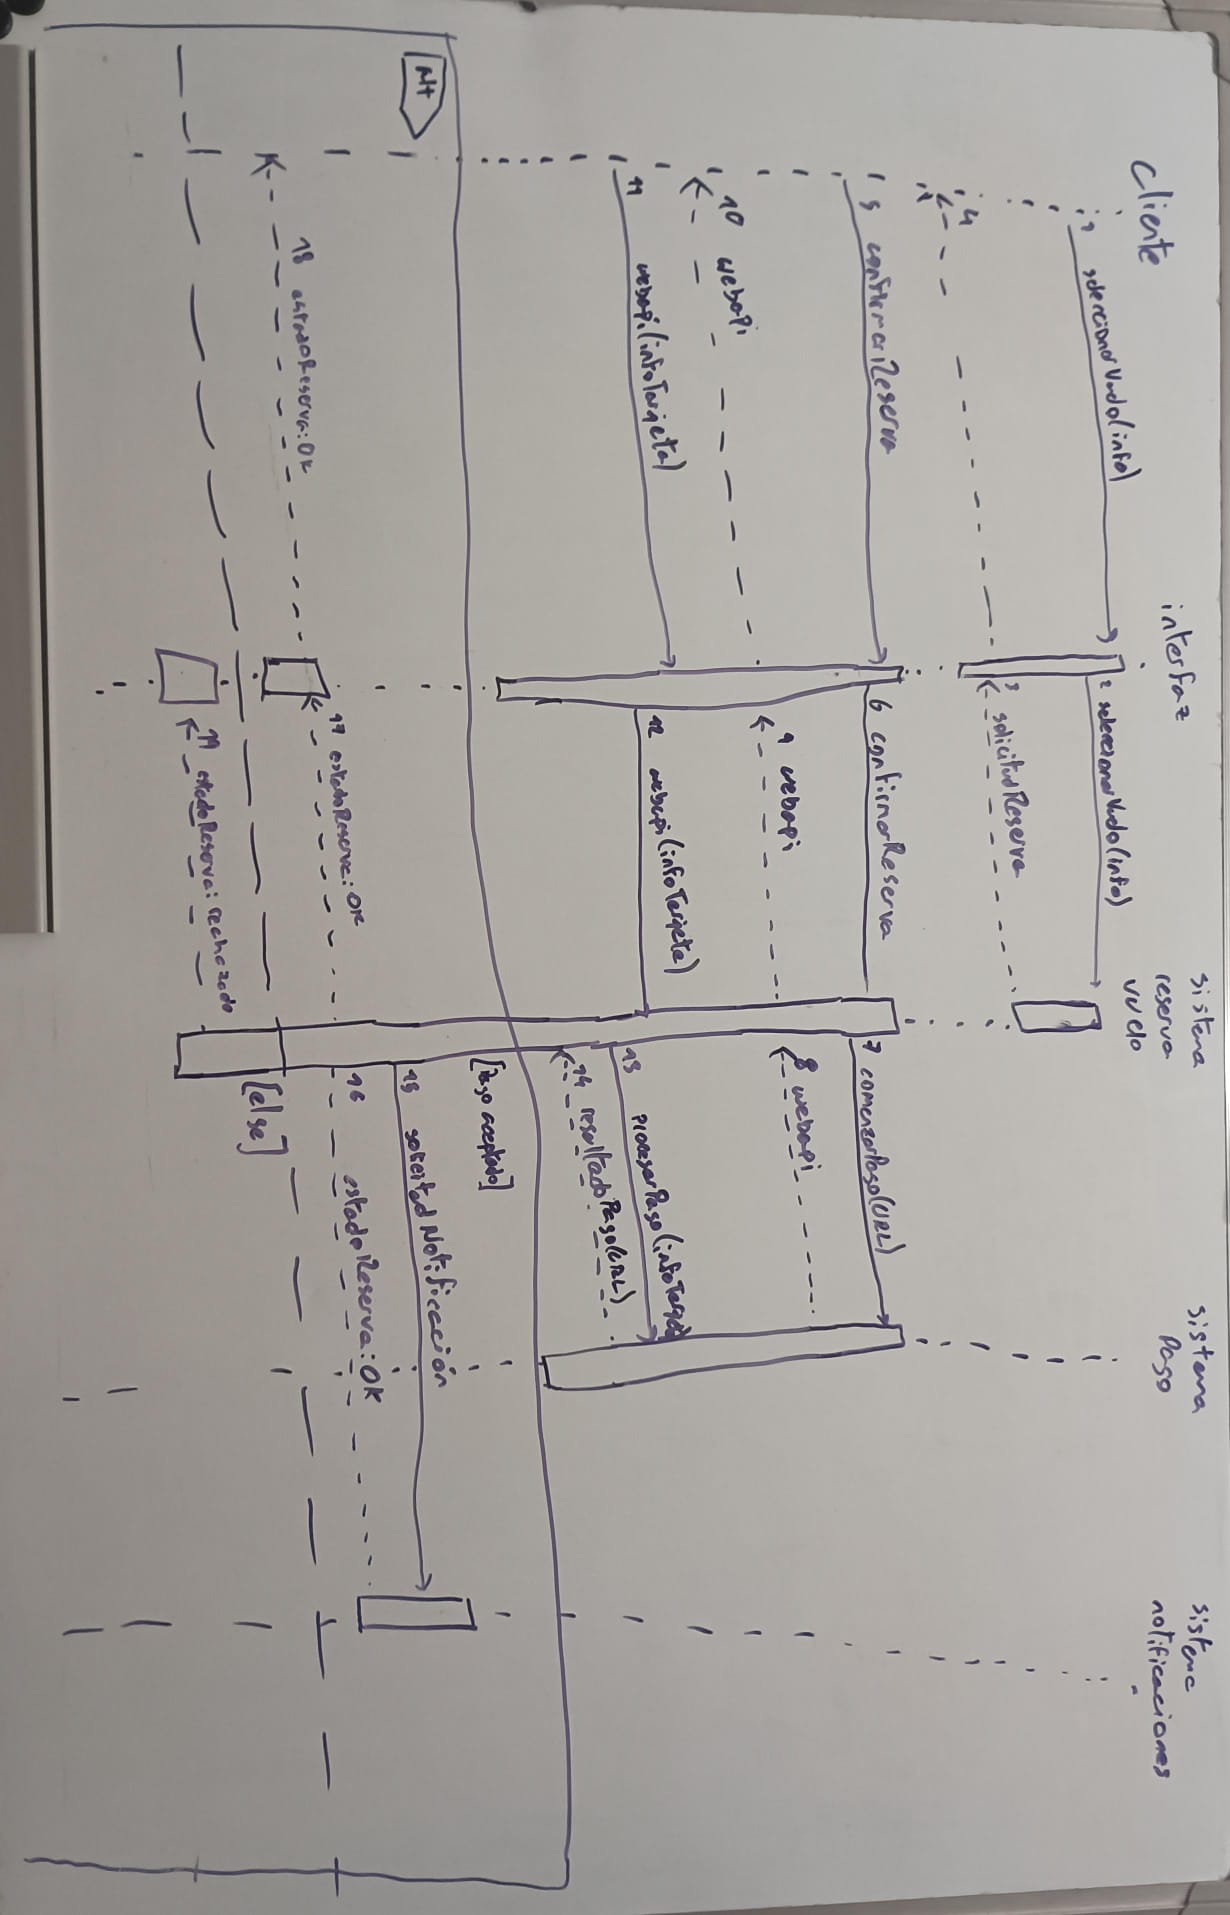 Cliente
interfaz
sistema
reserva
vuelo
sistema
Pago
sistema
notificaciones
1 selecionarVuelo(info)
2 selecionarVuelo(info)
3 solicitudReserva
4
5 confirmarReserva
6 confirmarReserva
7 comenzarPago(URL)
8 webapi
9 webapi
10 webapi
11 webapi(infoTarjeta)
12 webapi(infoTarjeta)
13 procesarPago(infoTarjeta
14 resultadoPago(URL)
Alt
[Pago aceptado]
15 solicitudNotificación
16 estadoReserva:OK
17 estadoReserva:OK
18 estadoReserva:OK
[else]
19 estadoReserva:rechazado